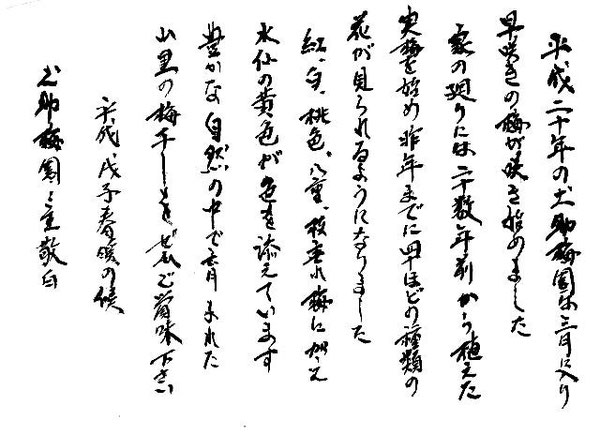 平成二十年の犬助梅園は三月に入り
早咲きの梅が咲き始めました
家の廻りには二十数年前から植えた
実梅を始め昨年までに四十ほどの種類の
花が見られるようになりました
紅、白、桃色、八重、枝垂れ梅に加え
水仙の黄色が色を添えています
豊かな自然の中で育まれた
山里の梅干しをぜひご賞味下さい
平成戊子春暖の候
犬助梅園 三重敬白